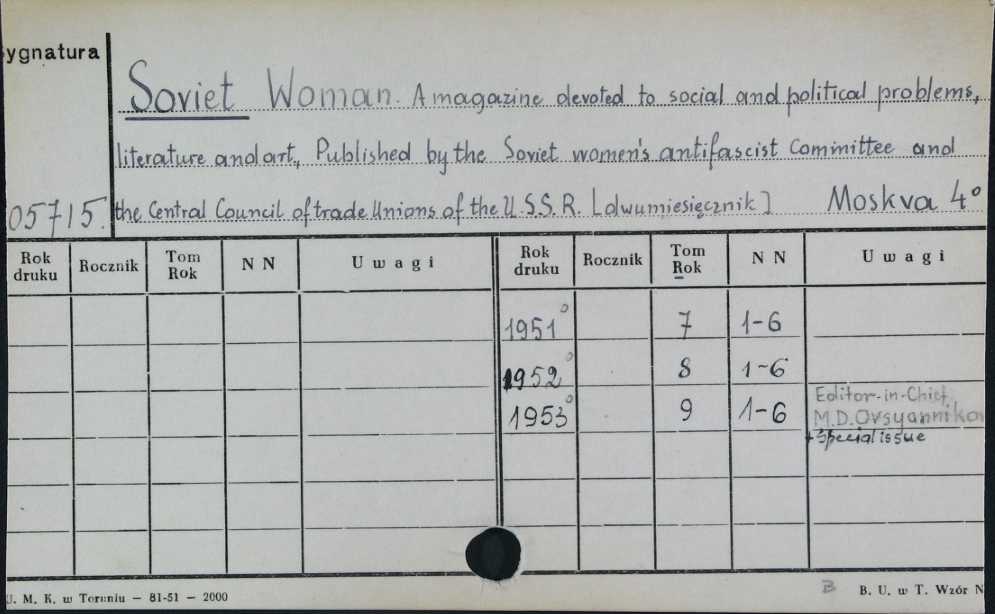 ygnatura
Soviet Woman. A magazine devoted to social and political problems,
literature and art, Published by the Soviet women's antifascist Committee and
05715. the Central Council of trade Unions of the U.S.S.R. [dwumiesięcznik] Moskva 4°
Rok druku Rocznik Tom Rok N N Uwagi Rok druku Rocznik Tom Rok N N Uwagi
1951° 7 1-6
1952° 8 1-6
1953° 9 1-6 Editor-in-Chief
M.D. Ovsyanniko
+ special issue
U. M. K. w Toruniu — 81-51 — 2000 B B. U. w T. Wzór N